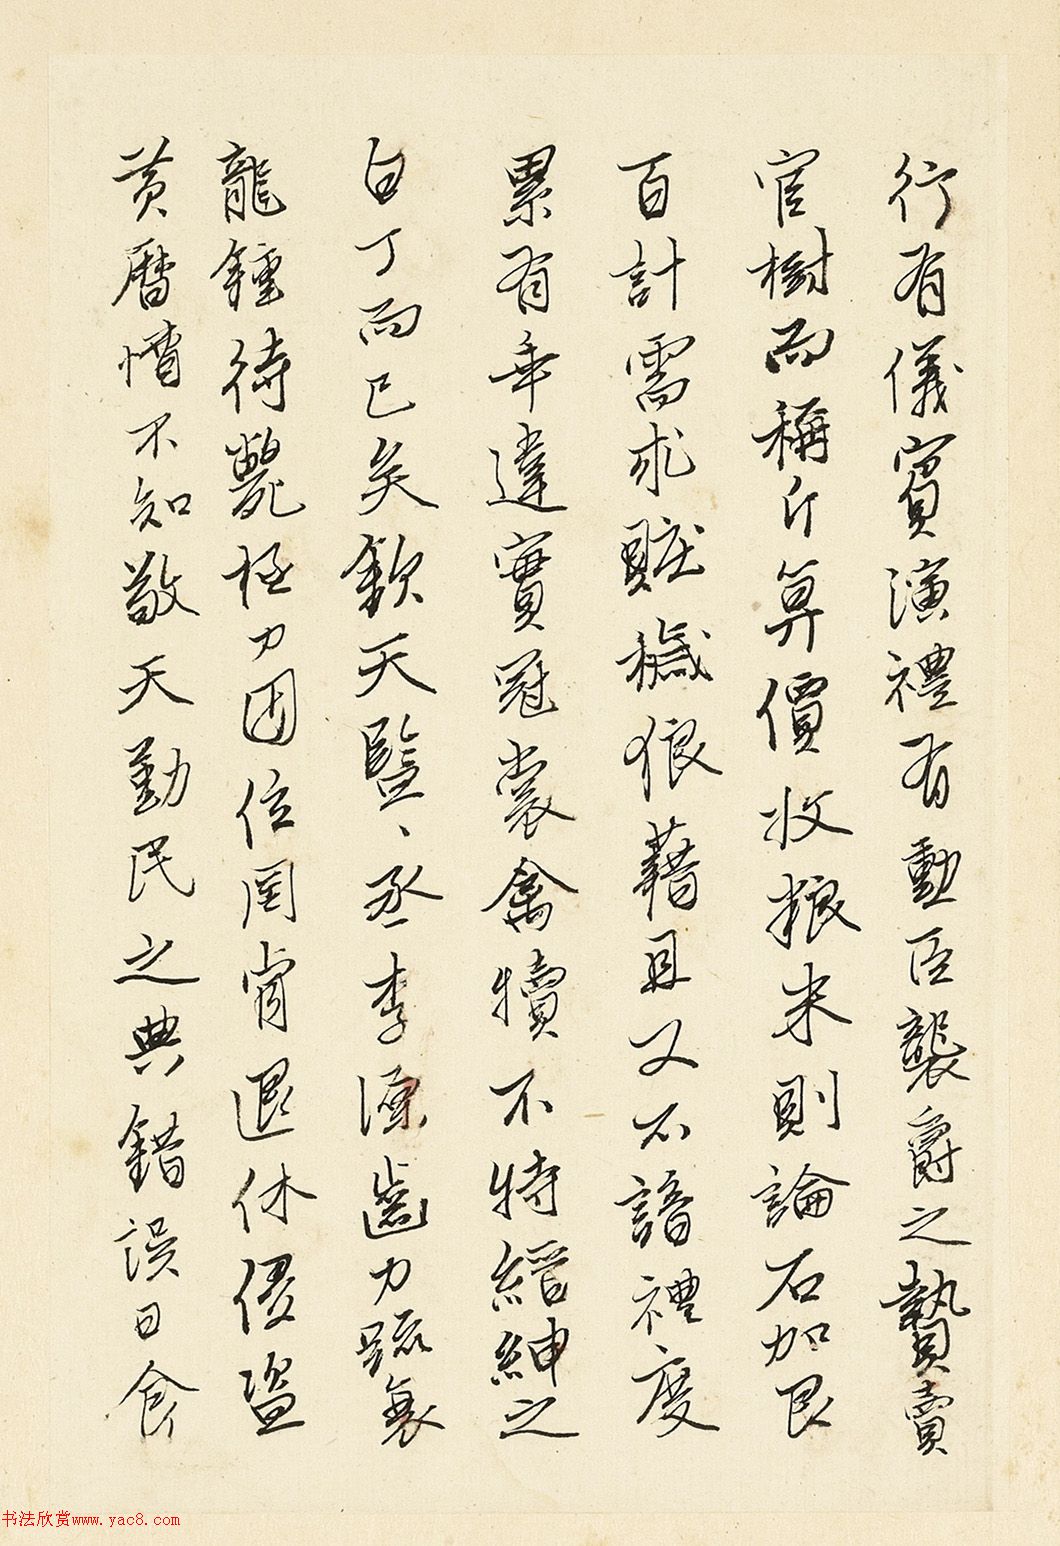 行有儀賓演禮有勳臣襲爵之贄賣
官樹而稱斤算價收粮米則論石加艮
百計需求贓穢狼藉且又不諳禮度
累有乖違實冠裳禽犢不特縉紳之
白丁而已矣欽天監監丞李源齒力疏衰
龍鍾待斃極力固位罔肯退休優盜
黄曆懵不知敬天勤民之典錯誤日食
书法欣赏www.yac8.com